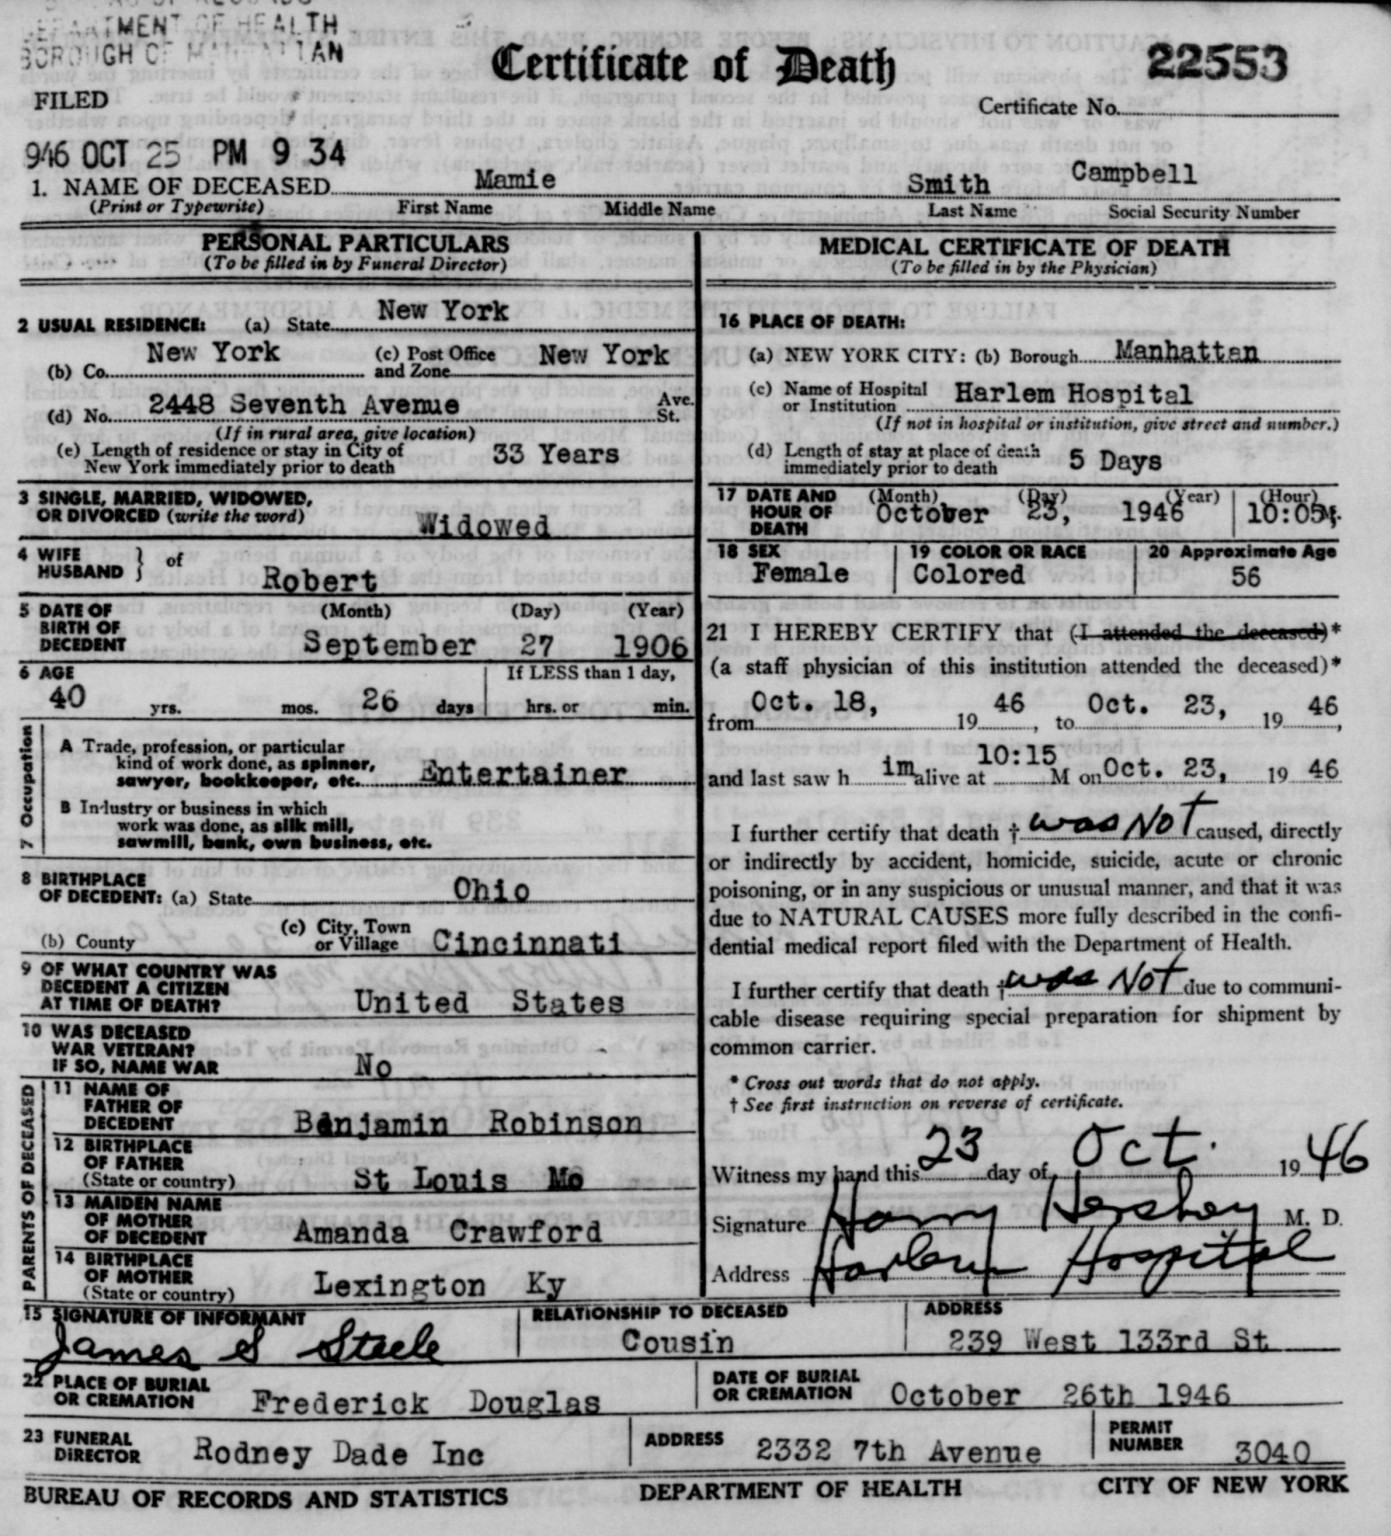 DEPARTMENT OF HEALTH
BOROUGH OF MANHATTAN
Certificate of Death
22553
FILED
Certificate No.
946 OCT 25 PM 9 34
1. NAME OF DECEASED Mamie Smith Campbell
(Print or Typewrite) First Name Middle Name Last Name Social Security Number
PERSONAL PARTICULARS
(To be filled in by Funeral Director)
2 USUAL RESIDENCE: (a) State New York
(b) Co. New York (c) Post Office and Zone New York
(d) No. 2448 Seventh Avenue Ave. St.
(If in rural area, give location)
(e) Length of residence or stay in City of
New York immediately prior to death 33 Years
3 SINGLE, MARRIED, WIDOWED,
OR DIVORCED (write the word) Widowed
4 WIFE
HUSBAND } of Robert
5 DATE OF
BIRTH OF
DECEDENT (Month) (Day) (Year)
September 27 1906
6 AGE If LESS than 1 day,
40 yrs. mos. 26 days hrs. or min.
7 Occupation
A Trade, profession, or particular
kind of work done, as spinner,
sawyer, bookkeeper, etc. Entertainer
B Industry or business in which
work was done, as silk mill,
sawmill, bank, own business, etc.
8 BIRTHPLACE
OF DECEDENT: (a) State Ohio
(b) County (c) City, Town or Village Cincinnati
9 OF WHAT COUNTRY WAS
DECEDENT A CITIZEN
AT TIME OF DEATH? United States
10 WAS DECEASED
WAR VETERAN?
IF SO, NAME WAR No
PARENTS OF DECEASED
11 NAME OF
FATHER OF
DECEDENT Benjamin Robinson
12 BIRTHPLACE
OF FATHER
(State or country) St Louis Mo
13 MAIDEN NAME
OF MOTHER
OF DECEDENT Amanda Crawford
14 BIRTHPLACE
OF MOTHER
(State or country) Lexington Ky
MEDICAL CERTIFICATE OF DEATH
(To be filled in by the Physician)
16 PLACE OF DEATH:
(a) NEW YORK CITY: (b) Borough Manhattan
(c) Name of Hospital
or Institution Harlem Hospital
(If not in hospital or institution, give street and number.)
(d) Length of stay at place of death
immediately prior to death 5 Days
17 DATE AND
HOUR OF
DEATH (Month) (Day) (Year) (Hour)
October 23, 1946 10:05 M.
18 SEX 19 COLOR OR RACE 20 Approximate Age
Female Colored 56
21 I HEREBY CERTIFY that (I attended the deceased)*
(a staff physician of this institution attended the deceased)*
from Oct. 18, 19 46, to Oct. 23, 19 46,
and last saw h im alive at 10:15 M on Oct. 23, 19 46
I further certify that death † was NOT caused, directly
or indirectly by accident, homicide, suicide, acute or chronic
poisoning, or in any suspicious or unusual manner, and that it was
due to NATURAL CAUSES more fully described in the confi-
dential medical report filed with the Department of Health.
I further certify that death † was NOT due to communi-
cable disease requiring special preparation for shipment by
common carrier.
* Cross out words that do not apply.
† See first instruction on reverse of certificate.
Witness my hand this 23 day of Oct. 1946
Signature Harry Hershey M. D.
Address Harlem Hospital
15 SIGNATURE OF INFORMANT RELATIONSHIP TO DECEASED ADDRESS
James S Steele Cousin 239 West 133rd St
22 PLACE OF BURIAL
OR CREMATION Frederick Douglas
DATE OF BURIAL
OR CREMATION October 26th 1946
23 FUNERAL
DIRECTOR Rodney Dade Inc ADDRESS 2332 7th Avenue
PERMIT
NUMBER 3040
BUREAU OF RECORDS AND STATISTICS DEPARTMENT OF HEALTH CITY OF NEW YORK